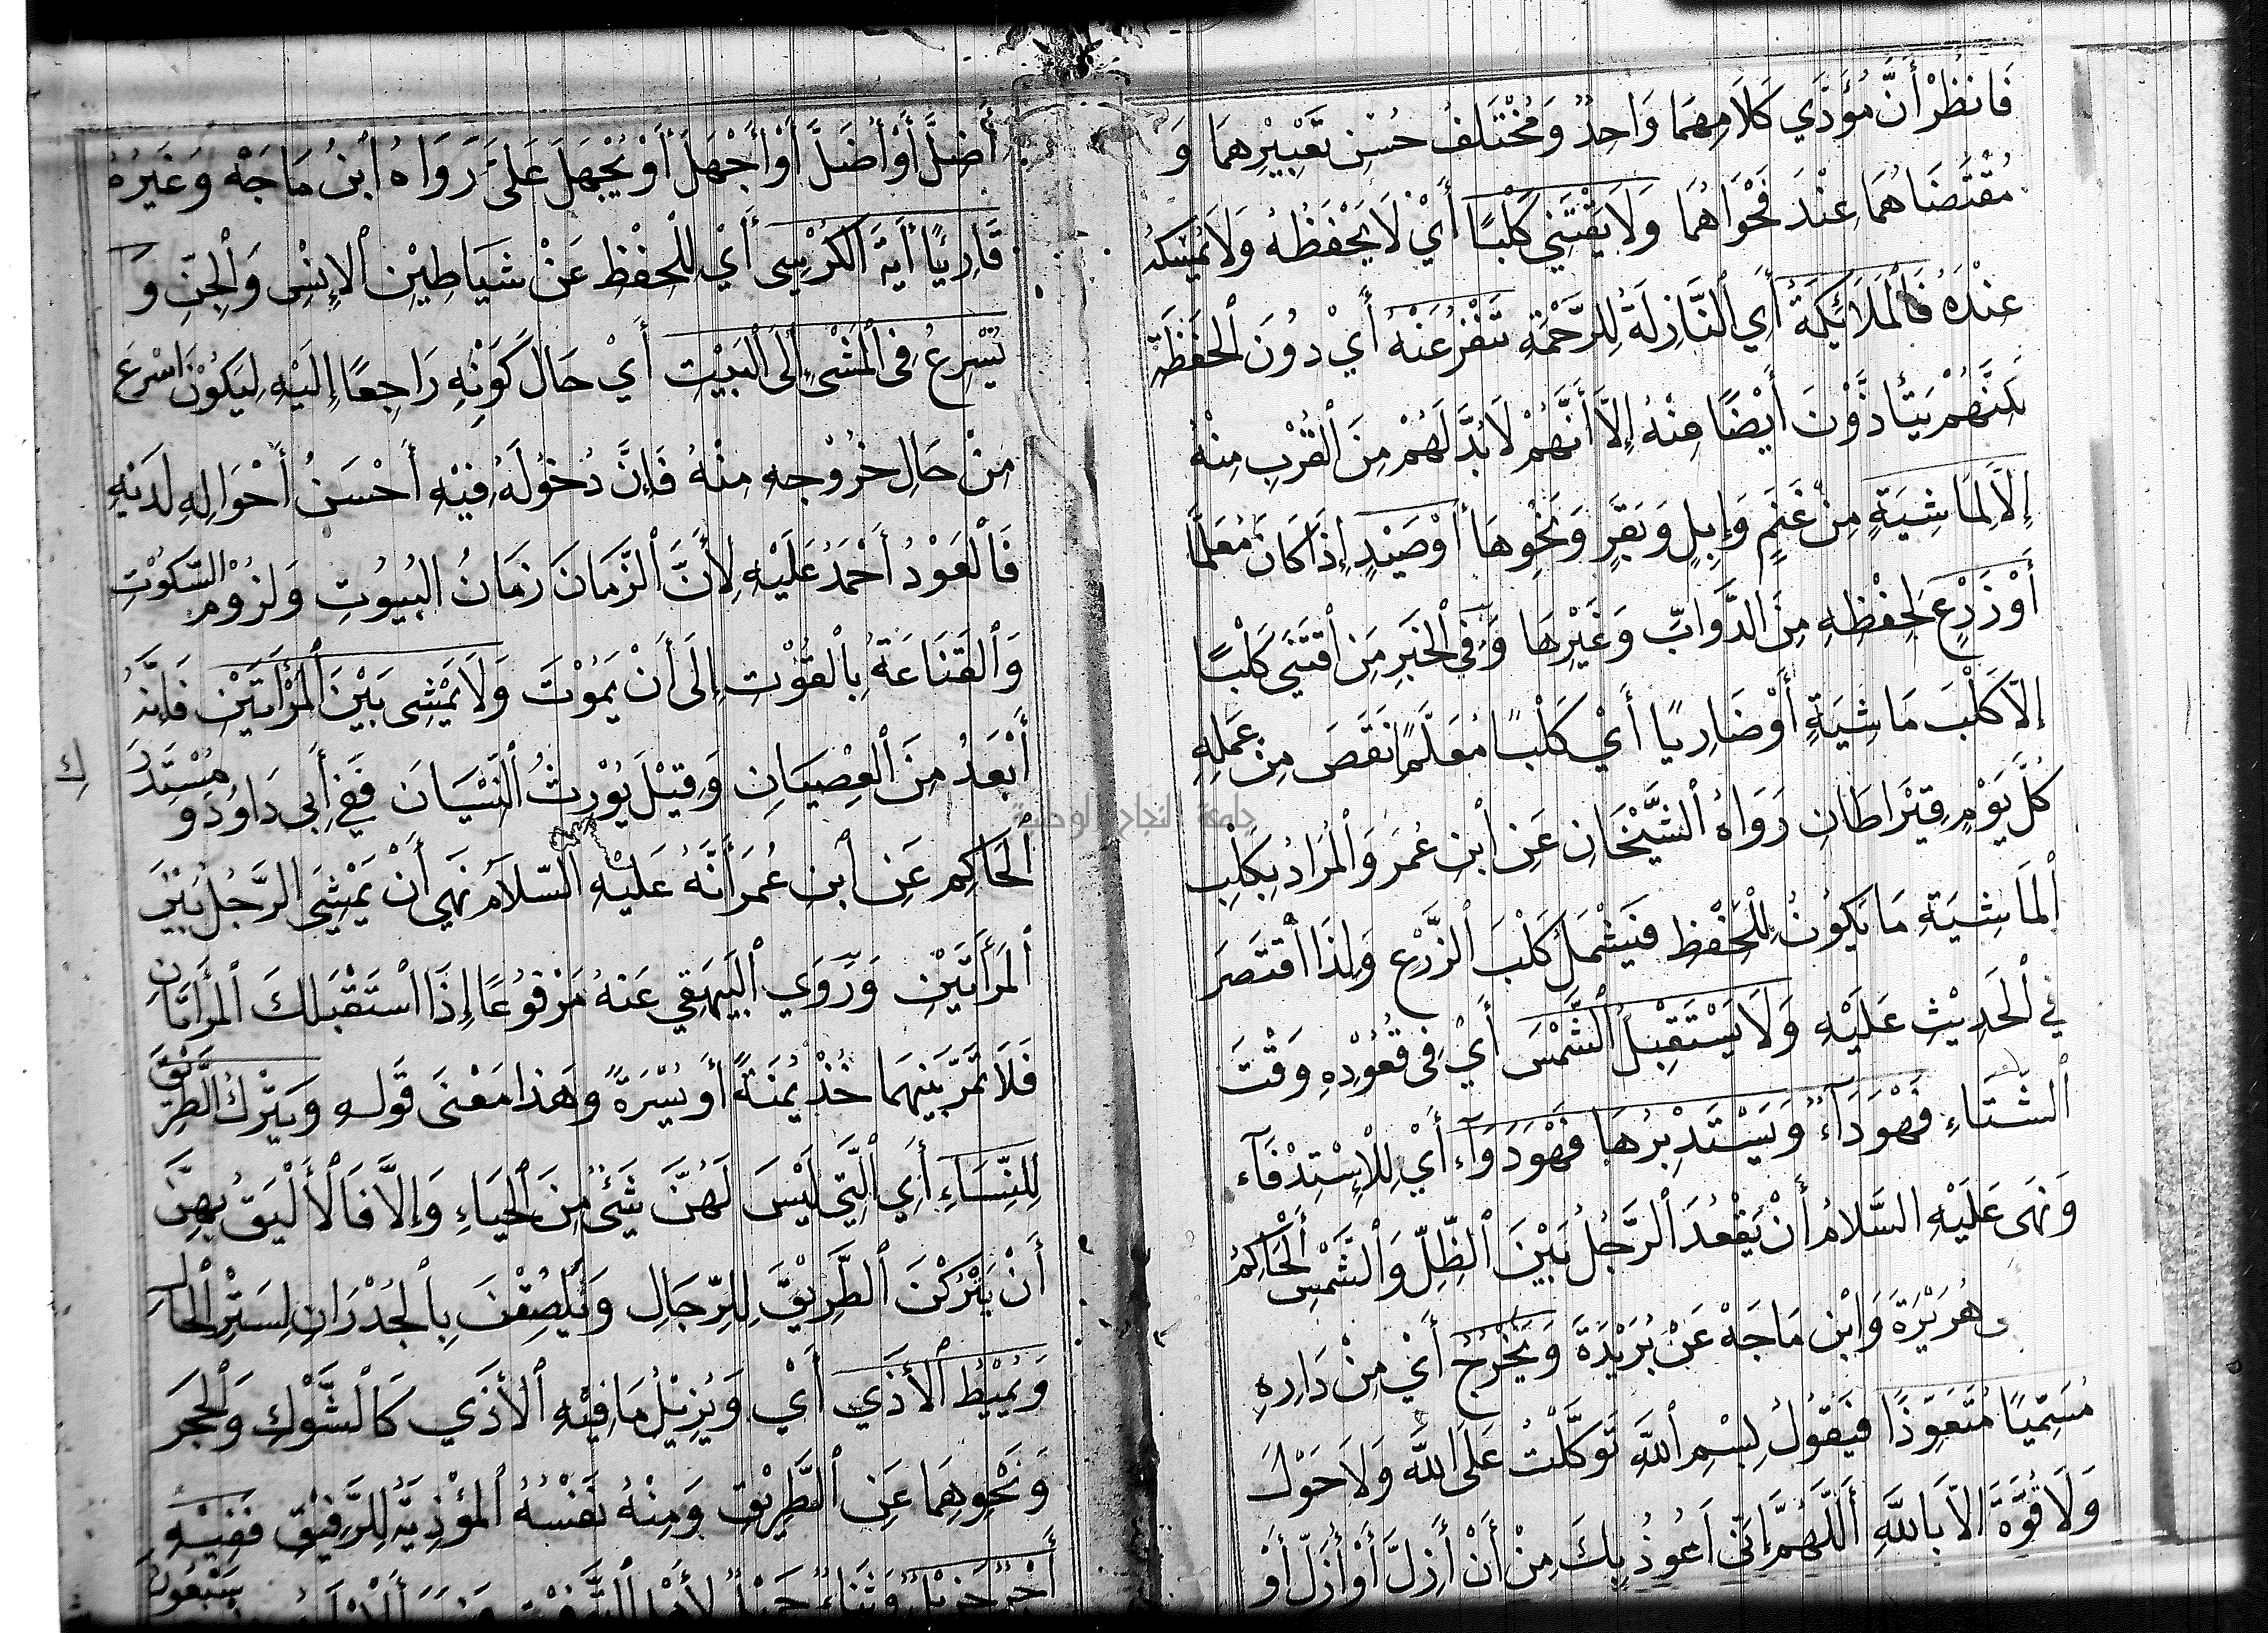 فَانْظُرْ أَنَّ مُؤَدَّي كَلَامِهِمَا وَاحِدٌ وَمُخْتَلَفُ حُسْنِ تَعْبِيْرِهِمَا وَ
مُقْتَضَاهُمَا عِنْدَ فَحْوَاهُمَا وَلَا يَقْتَنِي كَلْبًا أَيْ لَا يَحْفَظُهُ وَلَا يُمْسِكُهُ
عِنْدَهُ فَالْمَلَائِكَةُ أَيِ النَّازِلَةُ لِلرَّحْمَةِ تَنْفِرُ عَنْهُ أَيْ دُونَ الْحَفَظَةِ
يَتَأَذَّوْنَ أَيْضًا مِنْهُ إِلَّا أَنَّهُمْ لَا بُدَّ لَهُمْ مِنَ الْقُرْبِ مِنْهُ
إِلَّا لِمَاشِيَةٍ مِنْ غَنَمٍ وَإِبِلٍ وَبَقَرٍ وَنَحْوِهَا أَوْ صَيْدٍ إِذَا كَانَ مُعَلَّمًا
أَوْ زَرْعٍ لِحِفْظِهِ مِنَ الدَّوَابِّ وَغَيْرِهَا وَفِي الْخَبَرِ مَنِ اقْتَنَي كَلْبًا
إِلَّا كَلْبَ مَاشِيَةٍ أَوْ ضَارِيًا أَيْ كَلْبًا مُعَلَّمًا نَقَصَ مِنْ عَمَلِهِ
كُلَّ يَوْمٍ قِيْرَاطَانِ رَوَاهُ الشَّيْخَانِ عَنِ ابْنِ عُمَرَ وَالْمُرَادُ بِكَلْبِ
الْمَاشِيَةِ مَا يَكُونُ لِلْحِفْظِ فَيَشْمَلُ كَلْبَ الزَّرْعِ وَلِذَا اقْتَصَرَ
فِي الْحَدِيْثِ عَلَيْهِ وَلَا يَسْتَقْبِلُ الشَّمْسَ أَيْ فِي قُعُوْدِهِ وَقْتَ
الشِّتَاءِ فَهْوَ دَآءٌ وَيَسْتَدْبِرُهَا فَهْوَ دَوَآءٌ أَيْ لِلْاِسْتِدْفَآءِ
وَنَهَى عَلَيْهِ السَّلَامُ أَنْ يَقْعُدَ الرَّجُلُ بَيْنَ الظِّلِّ وَالشَّمْسِ الْحَاكِمُ
هُرَيْرَةَ وَابْنِ مَاجَهْ عَنْ بُرَيْدَةَ وَيَخْرُجُ أَيْ مِنْ دَارِهِ
مُسَمِّيًا مُتَعَوِّذًا فَيَقُوْلُ بِسْمِ اللَّهِ تَوَكَّلْتُ عَلَى اللَّهِ وَلَا حَوْلَ
وَلَا قُوَّةَ إِلَّا بِاللَّهِ أَللَّهُمَّ إِنِّي أَعُوذُ بِكَ مِنْ أَنْ أَزِلَّ أَوْ أُزَلَّ أَوْ
أَضِلَّ أَوْ أُضَلَّ أَوْ أَجْهَلَ أَوْ يُجْهَلَ عَلَيَّ رَوَاهُ ابْنُ مَاجَهْ وَغَيْرُهُ
قَارِئًا أَيَةَ الْكُرْسِي أَيْ لِلْحِفْظِ عَنْ شَيَاطِيْنِ الْإِنْسِ وَالْجِنِّ وَ
يُسْرِعُ فِي الْمَشْيِ إِلَى الْبَيْتِ أَيْ حَالَ كَوْنِهِ رَاجِعًا إِلَيْهِ لِيَكُوْنَ اَسْرَعَ
مِنْ حَالِ خُرُوْجِهِ مِنْهُ فَإِنَّ دُخُوْلَهُ فِيْهِ أَحْسَنُ أَحْوَالِهِ لَدَيْهِ
فَالْعَوْدُ أَحْمَدُ عَلَيْهِ لِأَنَّ الزَّمَانَ زَمَانُ الْبُيُوتِ وَلُزُوْمِ السُّكُوْتِ
وَالْقَنَاعَةُ بِالْقُوْتِ إِلَى أَنْ يَمُوْتَ وَلَا يَمْشِي بَيْنَ الْمَرْأَتَيْنِ فَإِنَّهُ
أَبْعَدُ مِنَ الْعِصْيَانِ وَقِيْلَ يُوْرِثُ النِّسْيَانَ فَفِي أَبِي دَاوُدَ وَ مُسْتَدْرَكِ
الْحَاكِمِ عَنِ ابْنِ عُمَرَ أَنَّهُ عَلَيْهِ السَّلَامُ نَهَي أَنْ يَمْشِيَ الرَّجُلُ بَيْنَ
الْمَرْأَتَيْنِ وَرَوَي الْبَيْهَقِي عَنْهُ مَرْفُوْعًا إِذَا اسْتَقْبَلَكَ الْمَرْأَتَانِ
فَلَا تَمُرَّ بَيْنَهُمَا خُذْ يُمْنَةً أَوْ يُسْرَةً وَهَذَا مَعْنَى قَوْلِهِ وَيَتْرُكُ الطَّرِيْقَ
لِلنِّسَاءِ أَيِ الَّتِي لَيْسَ لَهُنَّ شَيْئٌ مِنَ الْحَيَاءِ وَإِلَّا فَالْأَلْيَقُ بِهِنَّ
أَنْ يَتْرُكْنَ الطَّرِيْقَ لِلرِّجَالِ وَيَلْصُقْنَ بِالْجُدْرَانِ لِسَتْرِ الْحَالِ
وَيُمِيْطُ الْأَذَي أَيْ وَيُزِيْلُ مَا فِيْهِ الْأَذَي كَالشَّوْكِ وَالْحَجَرِ
وَنَحْوِهِمَا عَنِ الطَّرِيْقِ وَمِنْهُ نَفْسُهُ الْمُؤْذِيَةُ لِلرَّفِيْقِ فَفِيْهِ
أَجْرٌ جَزِيْلٌ وَثَنَاءٌ جَمِيْلٌ
جامعة النجاح الوطنية